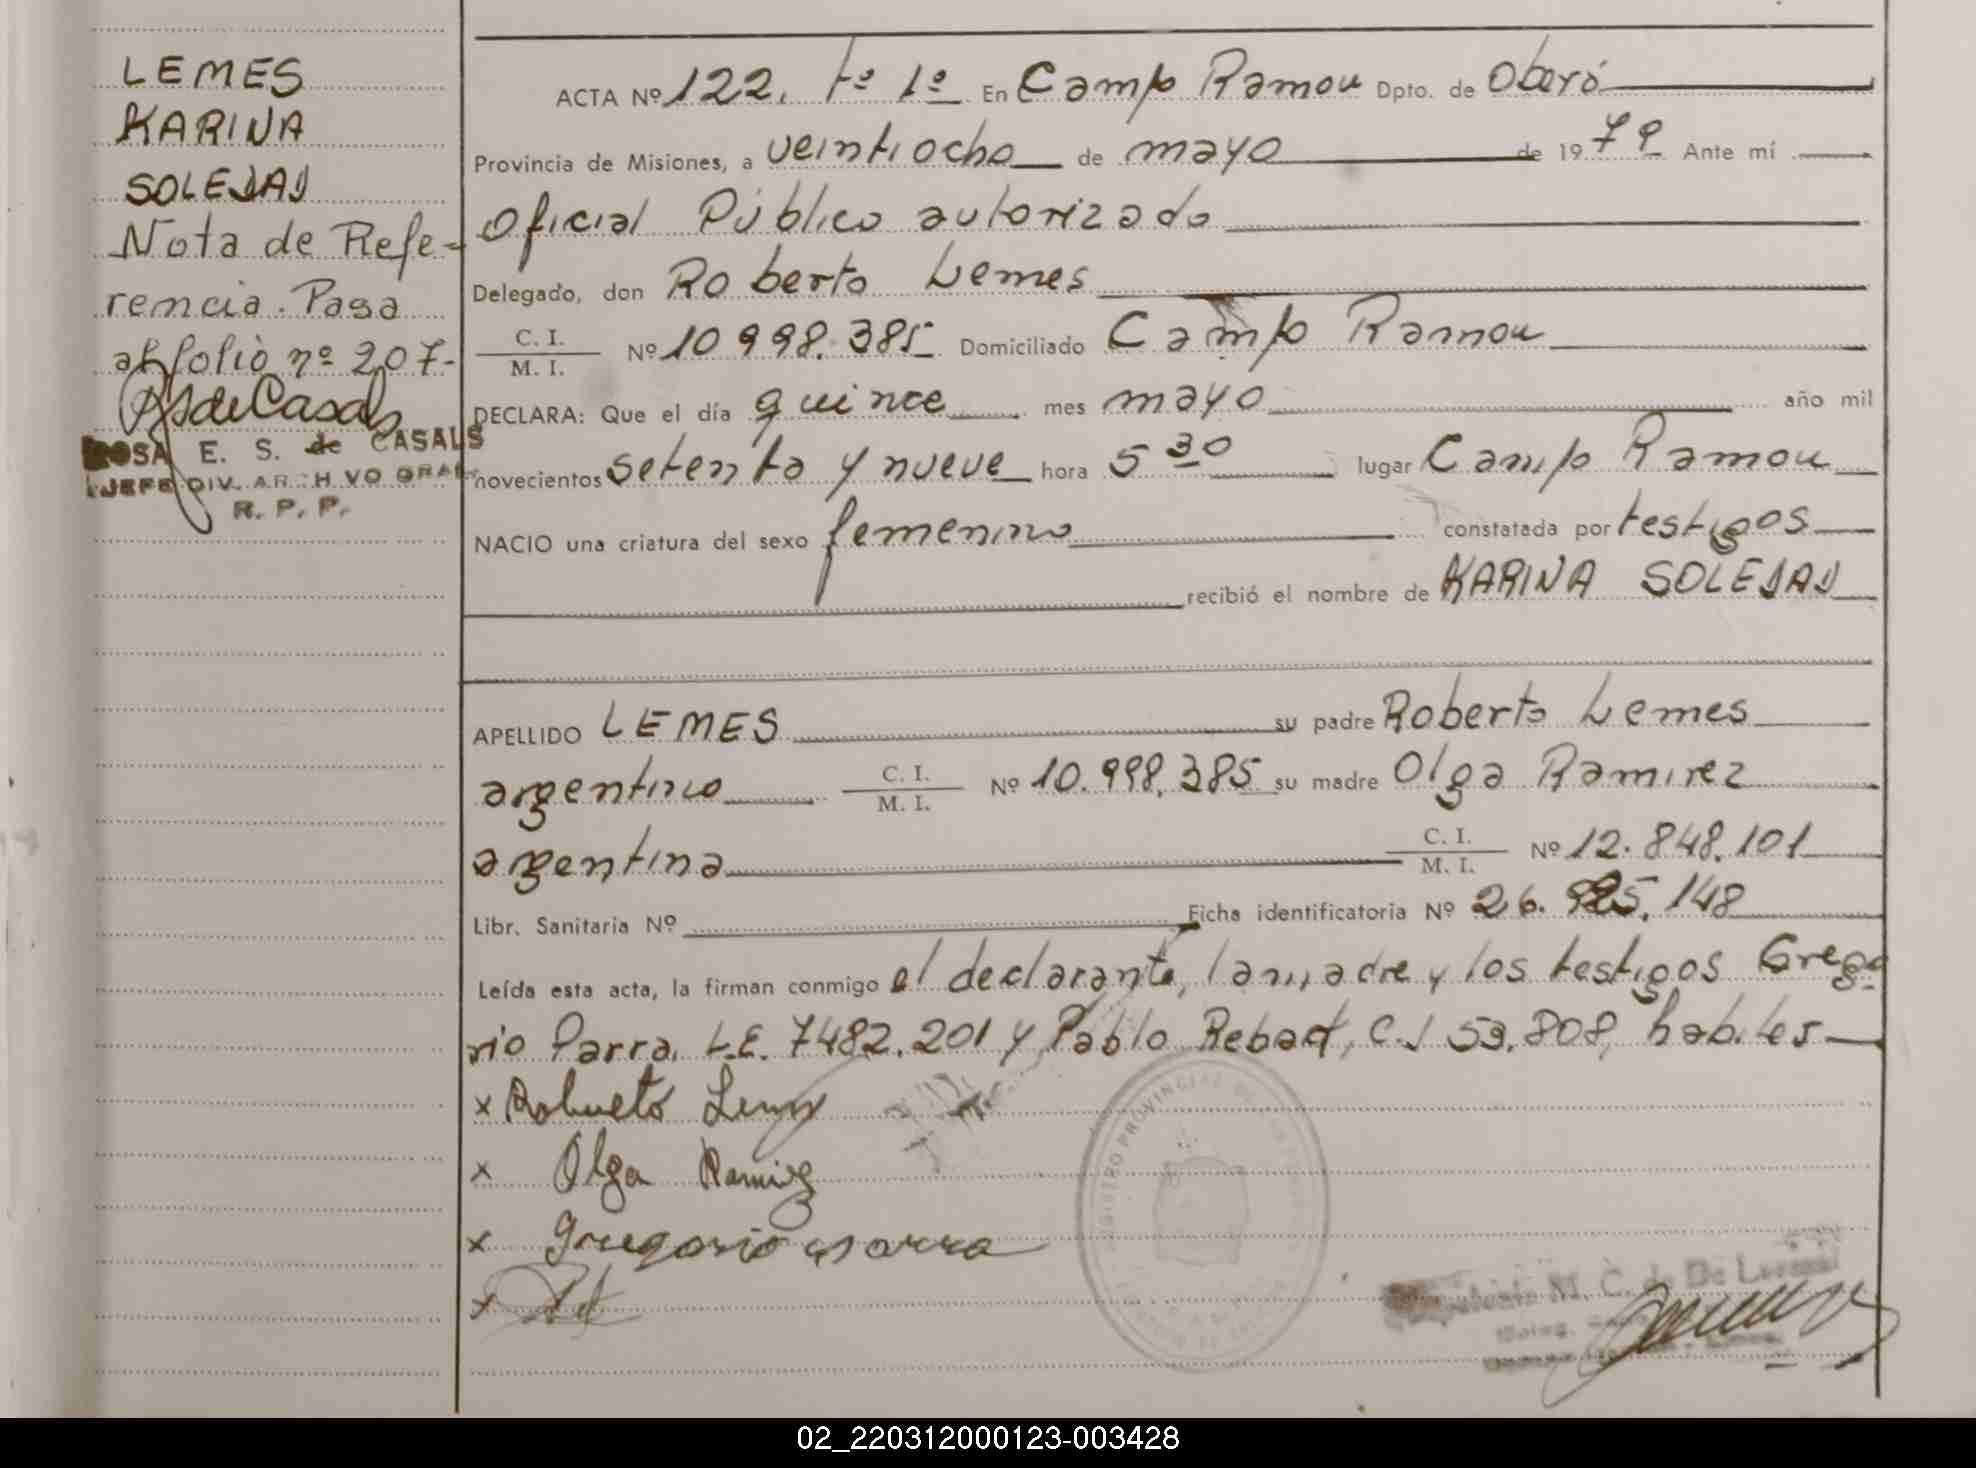 LEMES
KARINA
SOLEDAD
Nota de Refe-
rencia. Pasa
al folio nº 207-
RSdeCasals
ROSA E. S. de CASALS
JEFE DIV. ARCHIVO GRAL.
R. P. P.
ACTA Nº 122. tº 1º En Campo Ramon Dpto. de Oberó
Provincia de Misiones, a veintiocho de mayo de 1979 Ante mí
Oficial Público autorizado
Delegado, don Roberto Lemes
C. I.
M. I. Nº 10 998.385 Domiciliado Campo Ramon
DECLARA: Que el día quince mes mayo año mil
novecientos setenta y nueve hora 5 30 lugar Campo Ramon
NACIO una criatura del sexo femenino constatada por testigos
recibió el nombre de KARINA SOLEDAD
APELLIDO LEMES su padre Roberto Lemes
argentino C. I. M. I. Nº 10.998.385 su madre Olga Ramirez
argentina C. I. M. I. Nº 12.848.101
Libr. Sanitaria Nº Ficha identificatoria Nº 26.925.148
Leída esta acta, la firman conmigo el declarante, la madre y los testigos Grego
rio Parra, L.E. 7482.201 y Pablo Rebad, C.I 53.808, habiles
x Roberto Lemes
x Olga Ramirez
x Gregorio Parra
x
REGISTRO PROVINCIAL DE
M. C. de De
02_220312000123-003428